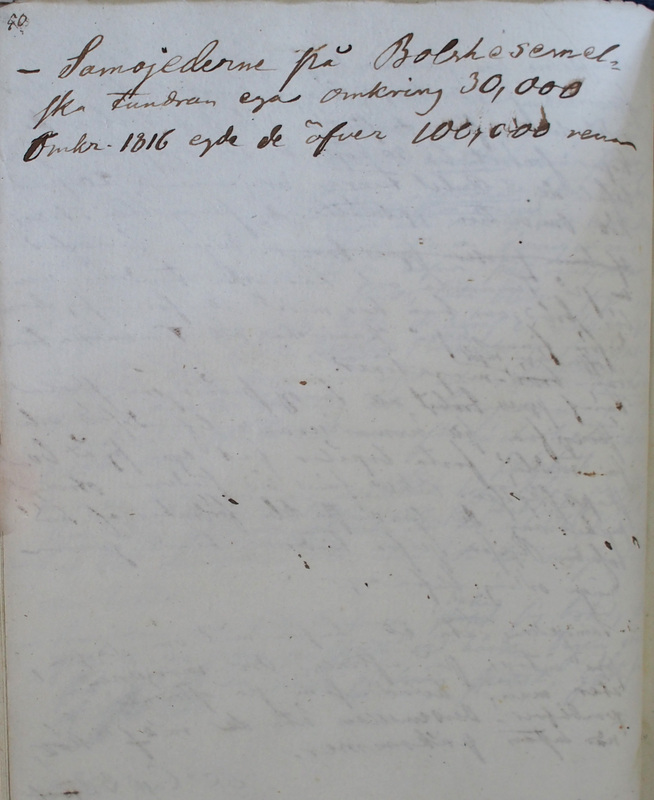 50.
– Samojederne på Bolshesemel-
ska Tundran ega omkring 30,000
Omkr. 1816 egde de öfver 100,000 renar